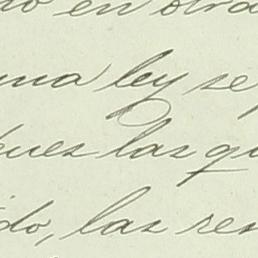 do en otra
una ley se
ues las qu
ido, las res